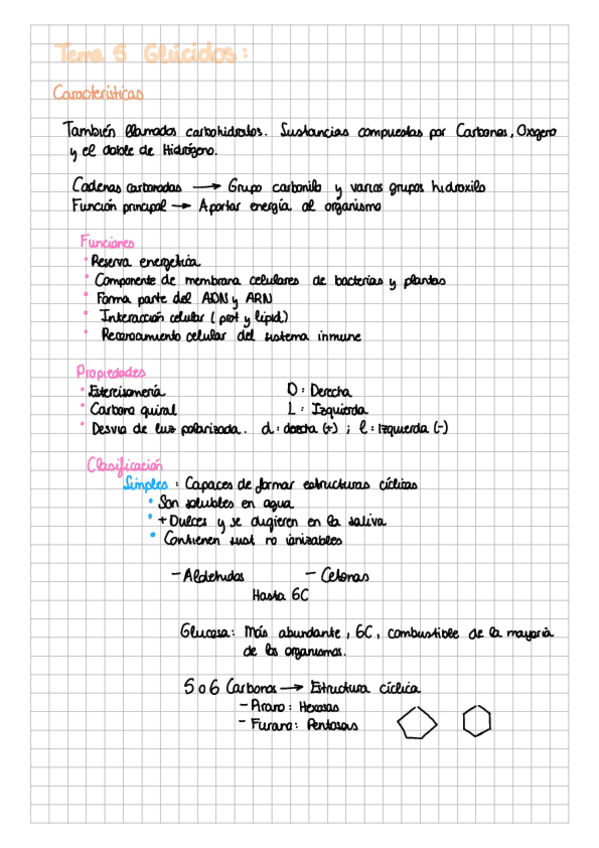 Tema 5 Glúcidos:
Características
También llamados carbohidratos. Sustancias compuestas por Carbonos, Oxígeno
y el doble de Hidrógeno.
Cadenas carbonadas → Grupo carbonilo y varios grupos hidroxilo
Función principal → Aportar energía al organismo
Funciones
• Reserva energética
• Componente de membrana celulares de bacterias y plantas
• Forma parte del ADN y ARN
• Interacción celular (prot y lípid)
• Reconocamiento celular del sistema inmune
Propiedades
• Estereisomería D: Derecha
• Carbono quiral L: Izquierda
• Desvia de luz polarizada. d: derecta (+) ; l: Izquierda (-)
Clasificación
Simples: Capaces de formar estructuras cíclicas
• Son solubles en agua
• + Dulces y se digieren en la saliva
• Contienen sust no ionizables
- Aldehidos - Cetonas
Hasta 6C
Glucosa: Más abundante, 6C, combustible de la mayoría
de los organismos.
5 o 6 Carbonos → Estructura cíclica
- Pirano: Hexosas
- Furano: Pentosas